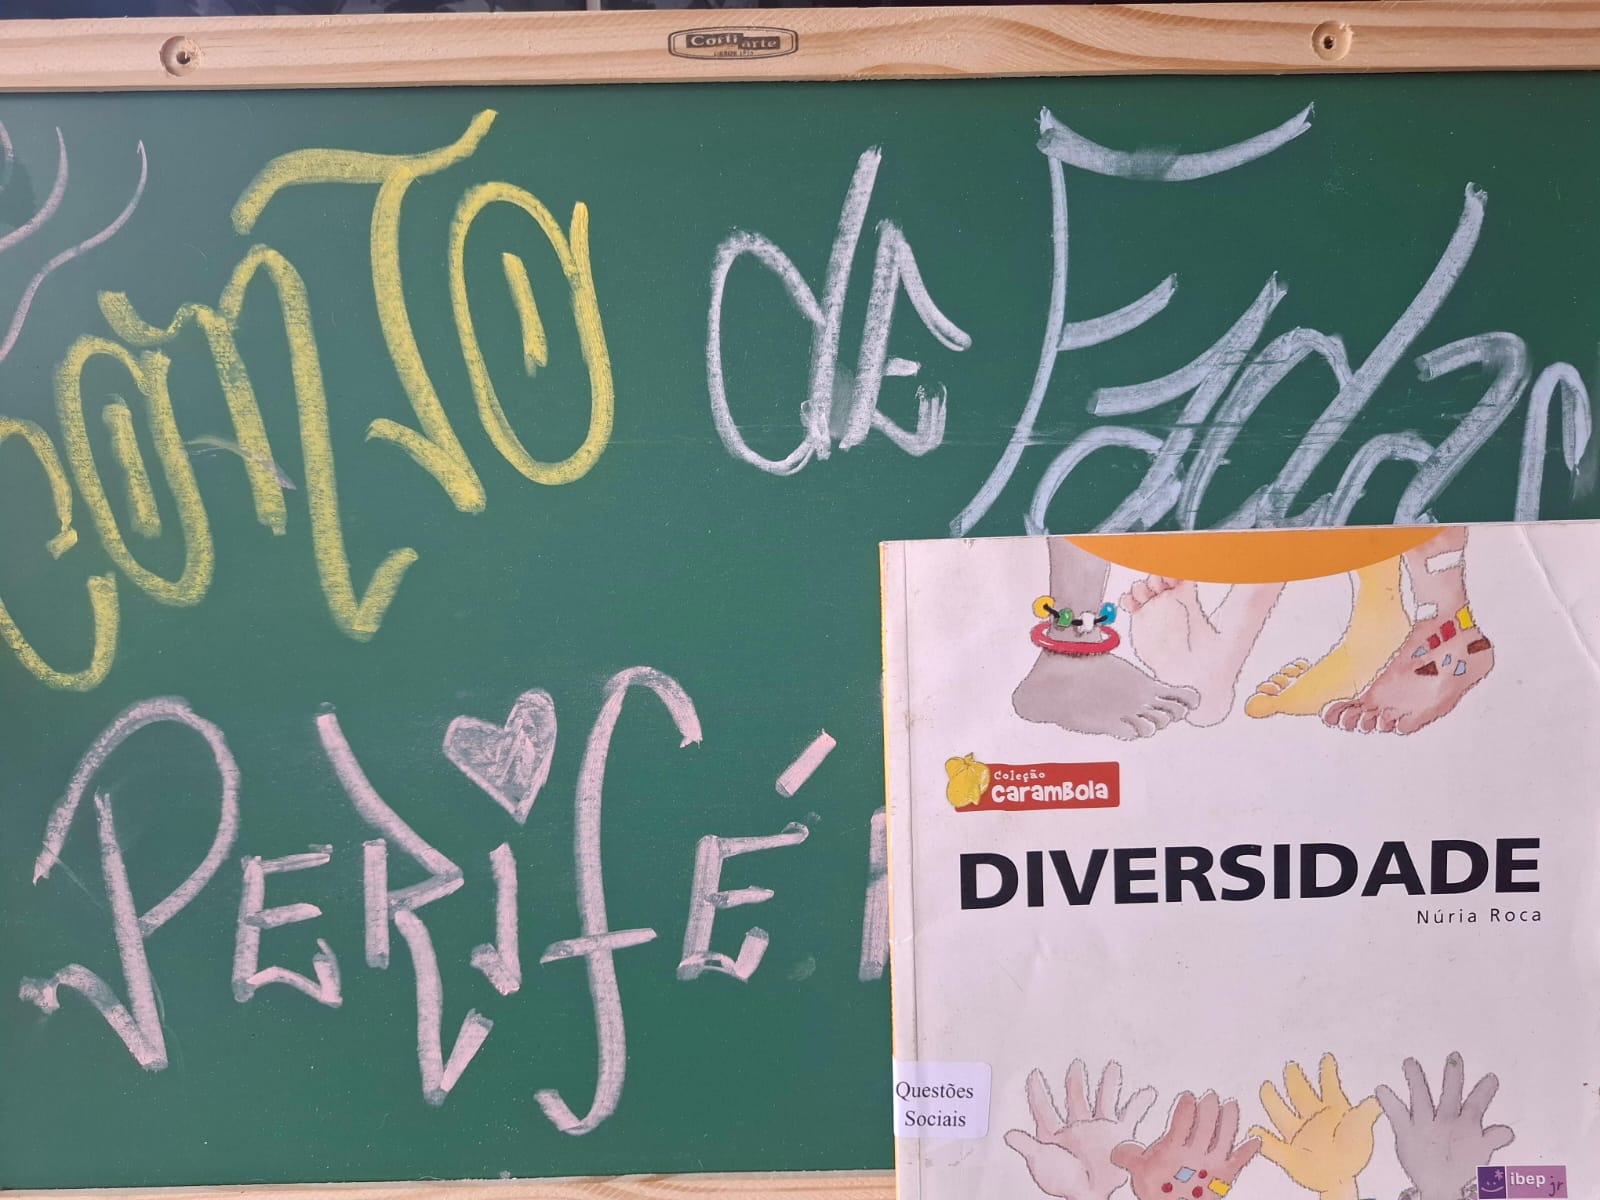 Corti arte
CONTO de Fadas
PERIFÉ
Coleção
caramBola
DIVERSIDADE
Núria Roca
Questões
Sociais
ibep jr